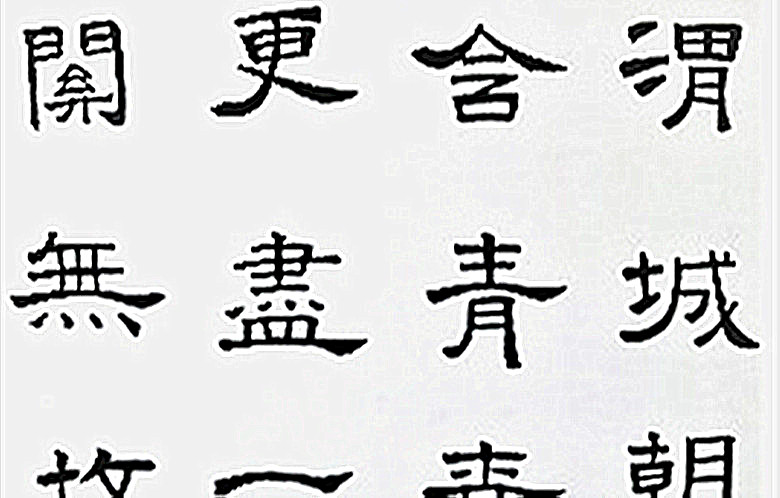 渭城朝
舍青青
更盡一
關無故